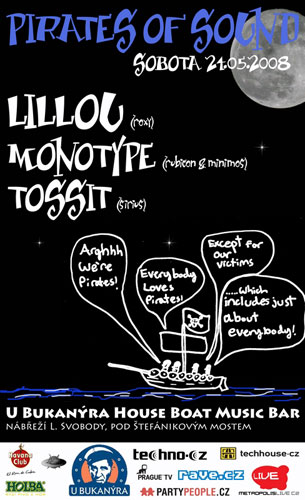 PIRATES OF SOUND
SOBOTA 24.05.2008
LILLOU (roxy)
MONOTYPE (rubicon & minimos)
TOSSIT (sirius)
Arghhh
We're
Pirates!
Everybody
Loves
Pirates!
Except for
our
victims
.....which
includes just
about
everybody!
U BUKANÝRA HOUSE BOAT MUSIC BAR
NÁBŘEŽÍ L. SVOBODY, POD ŠTEFÁNIKOVÝM MOSTEM
Havana
Club
HOLBA
U BUKANÝRA
techno.cz
PRAGUE TV
rave.cz
PARTYPEOPLE.CZ
techhouse.cz
LIVE
METROPOLISLIVE.CZ